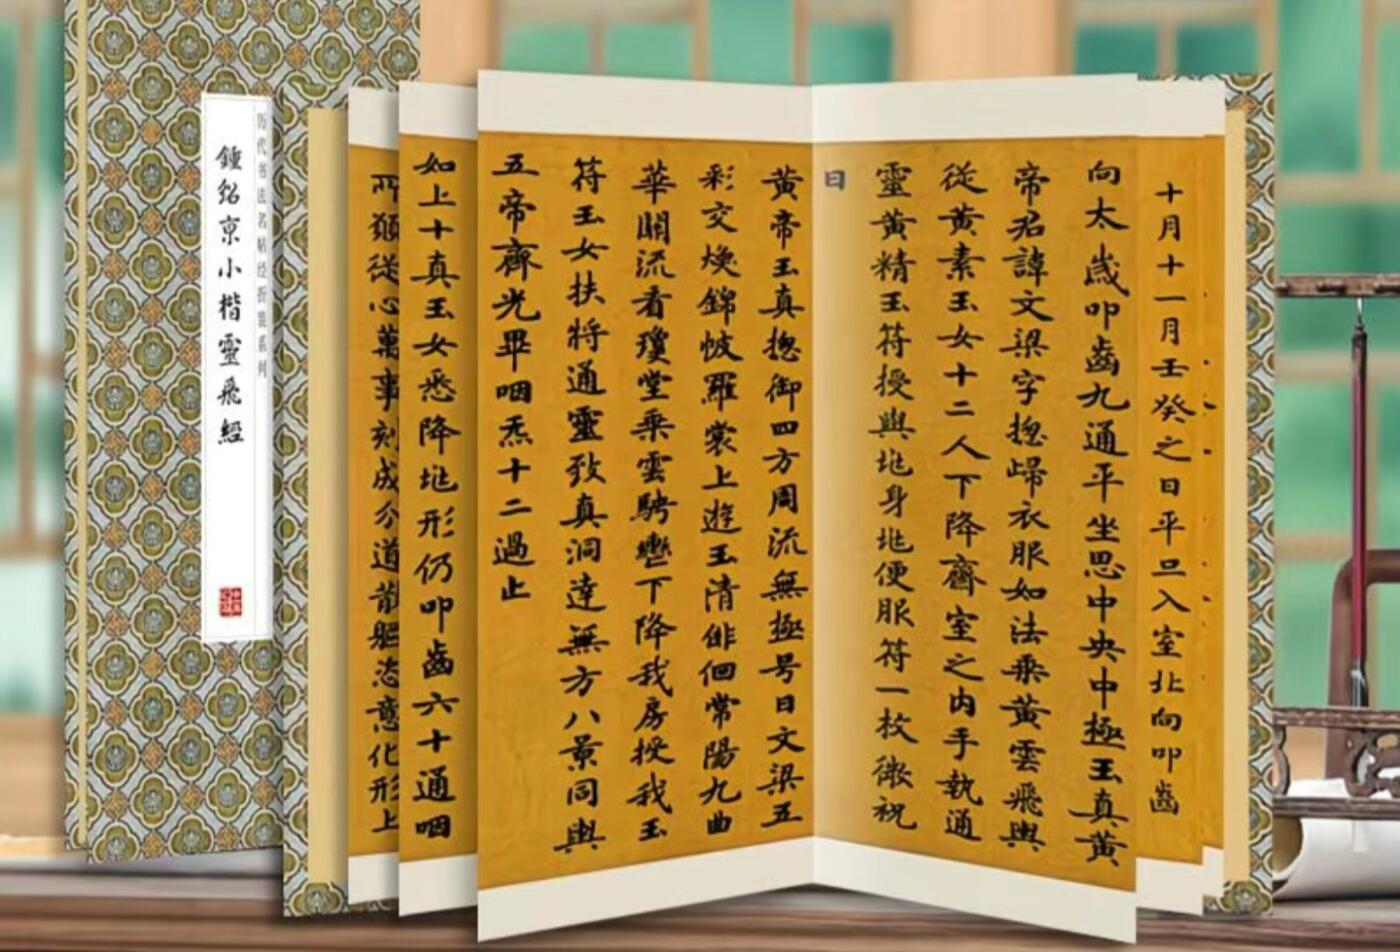 十月十一月壬癸之日平旦入室北向叩齒
向太歲叩齒九通平坐思中央中極玉真黃
帝君諱文梁字揔歸衣服如法乘黃雲飛輿
從黃素玉女十二人下降齋室之内手執通
靈黃精玉符授與兆身兆便服符一枚微祝
曰
黃帝玉真揔御四方周流無極号曰文梁五
彩交煥錦帔羅裳上遊玉清俳佪常陽九曲
華關流看瓊堂乘雲騁轡下降我房授我玉
符玉女扶將通靈致真洞達無方八景同輿
五帝齊光畢咽炁十二過止
如上十真玉女悉降兆形仍叩齒六十通咽
所願從心萬事剋成分道散軀恣意化形上
历代书法名帖经折装系列
鍾紹京小楷靈飛經